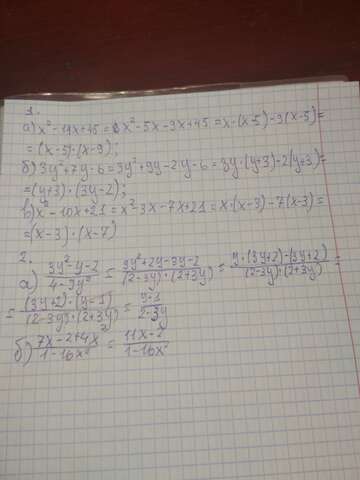 1.
а) x² - 14x + 45 = x² - 5x - 9x + 45 = x · (x - 5) - 9(x - 5) =
= (x - 5) · (x - 9);
б) 3y² + 7y - 6 = 3y² + 9y - 2y - 6 = 3y · (y + 3) - 2(y + 3) =
= (y + 3) · (3y - 2);
в) x² - 10x + 21 = x² - 3x - 7x + 21 = x · (x - 3) - 7(x - 3) =
= (x - 3) · (x - 7)
2.
а) (3y² - y - 2)/(4 - 9y²) = (3y² + 2y - 3y - 2)/((2 - 3y) · (2 + 3y)) = (y · (3y + 2) - (3y + 2))/((2 - 3y) · (2 + 3y)) =
= ((3y + 2) · (y - 1))/((2 - 3y) · (2 + 3y)) = (y - 1)/(2 - 3y)
б) (7x - 2 + 4x)/(1 - 16x²) = (11x - 2)/(1 - 16x²)